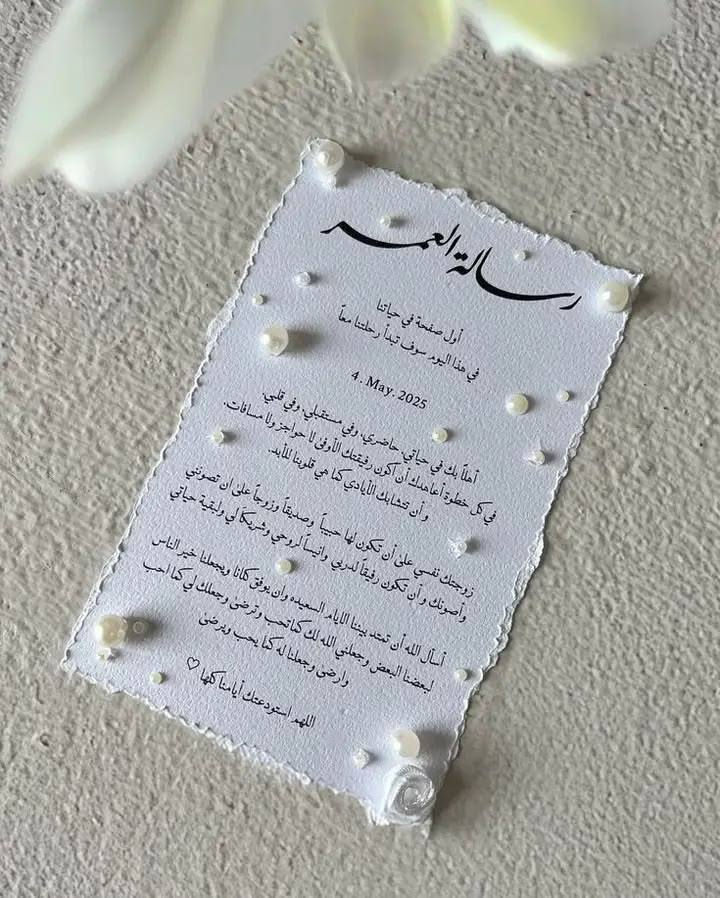 رسالة العمر
أول صفحة في حياتنا
في هذا اليوم سوف تبدأ رحلتنا معاً
4. May. 2025
أهلاً بك في حياتي، حاضري، وفي مستقبلي، وفي قلبي.
في كل خطوة أعاهدك أن أكون رفيقتك الأوفى لا حواجز ولا مسافات.
و أن تتشابك الأيادي كما هي قلوبنا للأبد.
زوجتك نفسي على أن تكون لها حبيباً وصديقاً وزوجاً على ان تصونني
وأصونك و أن تكون رفيقاً لدربي وانيساً لروحي وشريكاً لي ولبقية حياتي
أسأل الله أن تمتد بيننا الايام السعيده وان يوفق كلانا ويجعلنا خير الناس
لبعضنا البعض وجعلني الله لك كما تحب وترضى وجعلك لي كما احب
وارضى وجعلنا له كما يحب ويرضى
اللهم استودعتك أيامنا كلها ♡